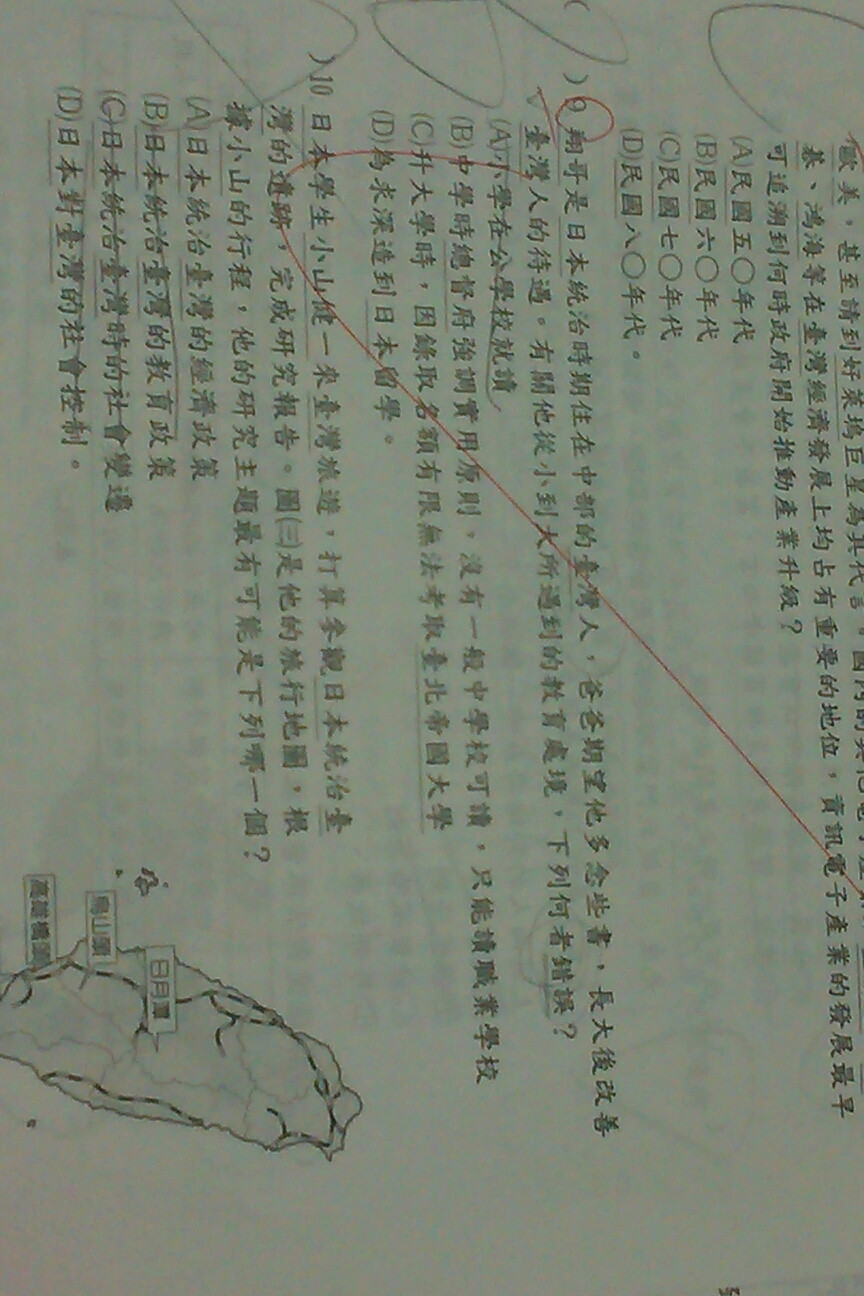 歐美，甚至請到好萊塢巨星為其代言。國內的其他電子產
基、鴻海等在臺灣經濟發展上均占有重要的地位，資訊電子產業的發展最早
可追溯到何時政府開始推動產業升級？
(A)民國五〇年代
(B)民國六〇年代
(C)民國七〇年代
(D)民國八〇年代。
)9 翔哥是日本統治時期住在中部的臺灣人，爸爸期望他多念些書，長大後改善
臺灣人的待遇。有關他從小到大所遇到的教育處境，下列何者錯誤？
(A)小學在公學校就讀
(B)中學時總督府強調實用原則，沒有一般中學校可讀，只能讀職業學校
(C)升大學時，因錄取名額有限無法考取臺北帝國大學
(D)為求深造到日本留學。
)10 日本學生小山健一來臺灣旅遊，打算參觀日本統治臺
灣的遺跡，完成研究報告。圖(三)是他的旅行地圖，根
據小山的行程，他的研究主題最有可能是下列哪一個？
(A)日本統治臺灣的經濟政策
(B)日本統治臺灣的教育政策
(C)日本統治臺灣時的社會變遷
(D)日本對臺灣的社會控制。
日月潭
烏山頭
高雄橋頭